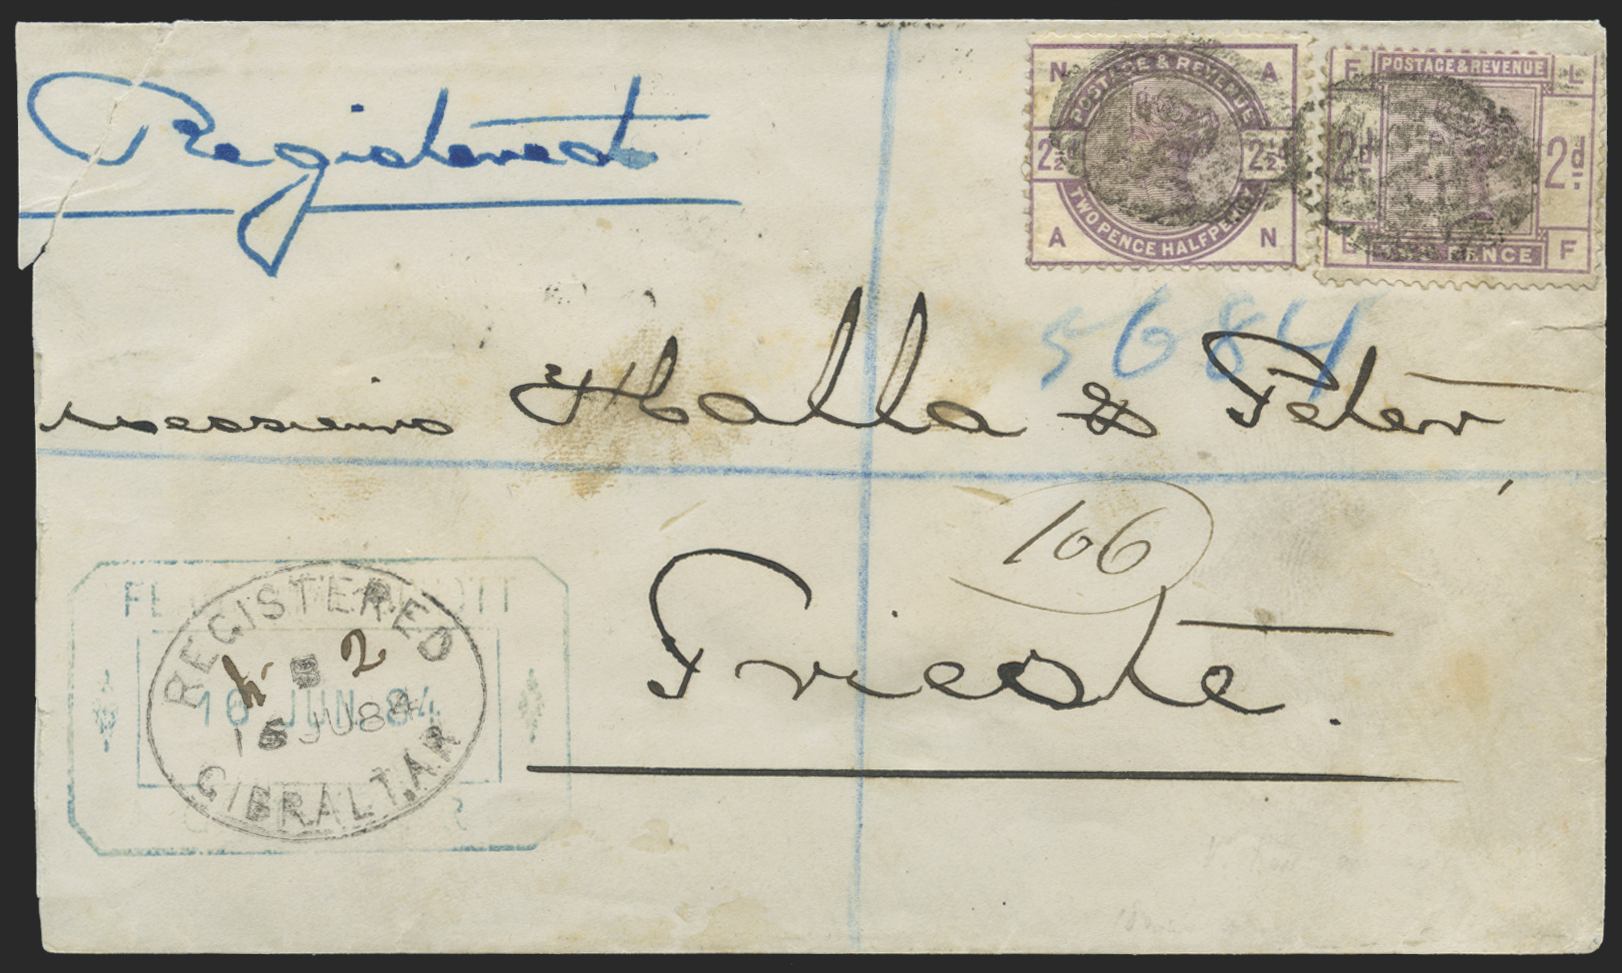 Registered
N A
POSTAGE & REVENUE
2½d 2½d
TWO PENCE HALFPENNY
A N
F L
POSTAGE & REVENUE
2d 2d
PENCE
L F
5684
Halla & Peter
106
Trieste.
REGISTERED
N° 2
16 JUN. 84
15 JU 84
GIBRALTAR